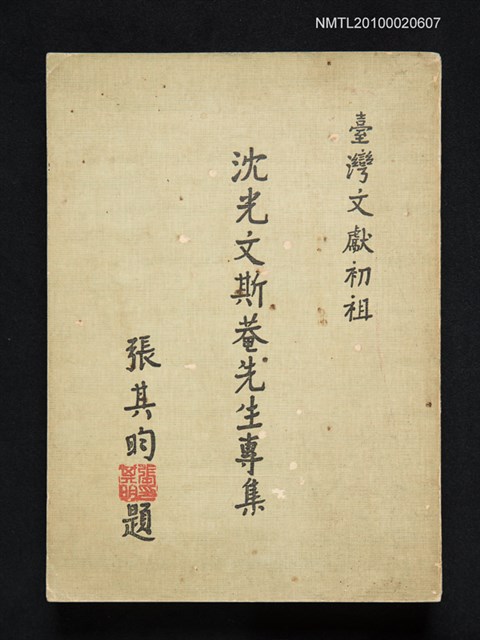 NMTL20100020607
臺灣文獻初祖
沈光文斯菴先生專集
張其昀題